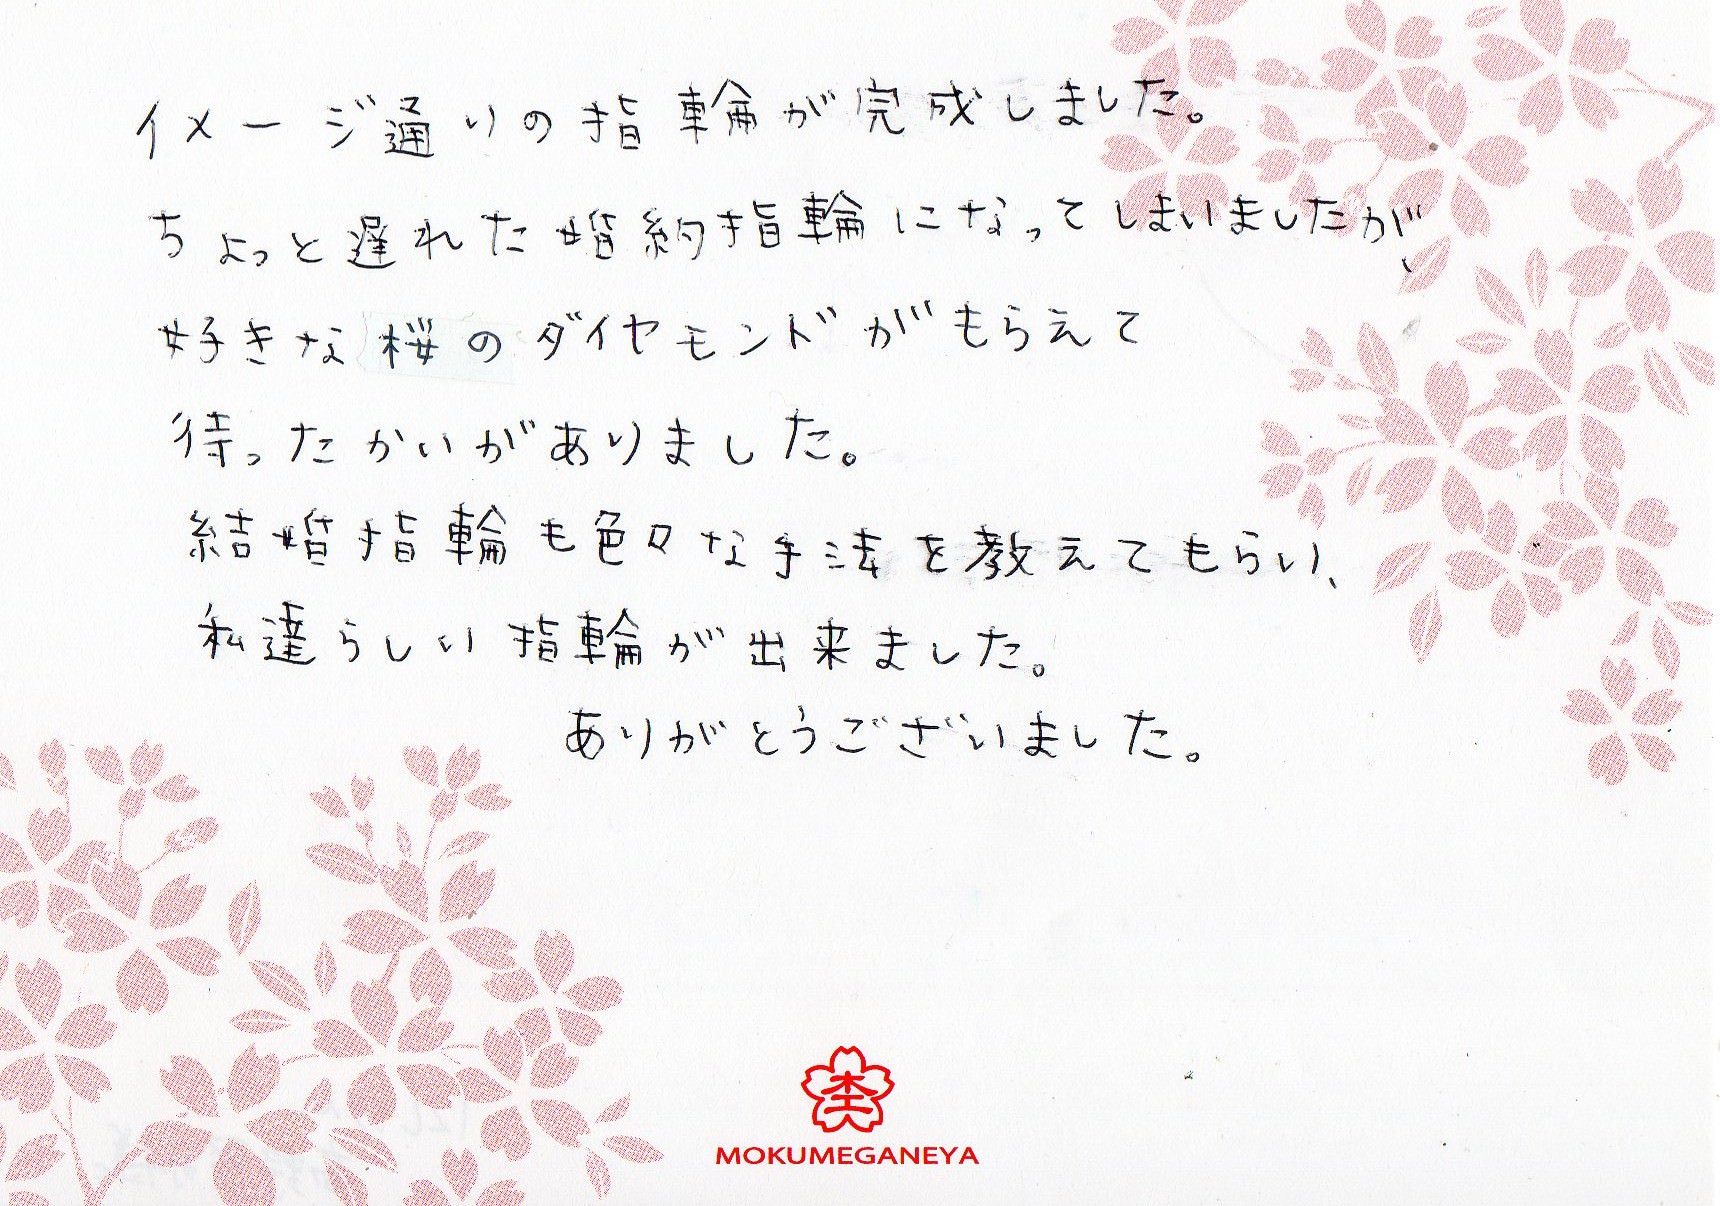 イメージ通りの指輪が完成しました。
ちょっと遅れた婚約指輪になってしまいましたが、
好きな桜のダイヤモンドがもらえて
待ったかいがありました。
結婚指輪も色々な手法を教えてもらい、
私達らしい指輪が出来ました。
ありがとうございました。
MOKUMEGANEYA